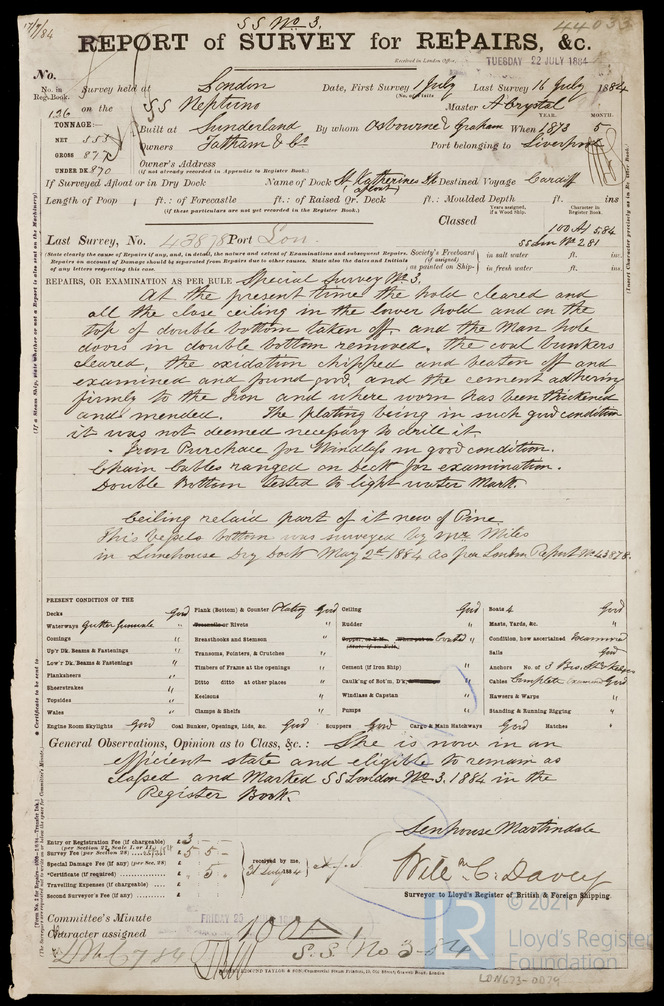 17/7/84
SS No 3.
44033
REPORT of SURVEY for REPAIRS, &c.
Received in London Office,
TUESDAY 22 JULY 1884
No.
No. in Reg. Book. 126
Survey held at London Date, First Survey 1 July Last Survey 16 July 1884
(No. of Visits
on the SS Neptuno Master A Crystal
TONNAGE:—
NET 553
GROSS 877
UNDER DK 870
YEAR. MONTH.
Built at Sunderland By whom Osbourne & Graham When 1873 5
Owners Tatham & Co Port belonging to Liverpool
Owner's Address
(if not already recorded in Appendix to Register Book.)
If Surveyed Afloat or in Dry Dock afloat Name of Dock St Katherines Dk Destined Voyage Cardiff
Length of Poop ft.: of Forecastle ft.: of Raised Qr. Deck ft.: Moulded Depth ft. ins
(if these particulars are not yet recorded in the Register Book.)
Years assigned, if a Wood Ship.
Character in Register Book.
Classed 100 A1 5.84
SS Lon No 2 81
Last Survey, No. 43878 Port Lon
(State clearly the cause of Repairs if any, and, in detail, the nature and extent of Examinations and subsequent Repairs.
Repairs on account of Damage should be separated from Repairs due to other causes. State also the dates and Initials
of any letters respecting this case.
Society's Freeboard (if assigned) as painted on Ship—
in salt water ft. ins.
in fresh water ft. ins.
REPAIRS, OR EXAMINATION AS PER RULE Special Survey No 3.
At the present time the hold cleared and
all the close ceiling in the lower hold and on the
top of double bottom taken off. and the Man hole
doors in double bottom removed. the coal bunkers
cleared, the oxidation chipped and beaten off and
examined and found good, and the cement adhering
firmly to the Iron and where worn has been thickened
and mended. The plating being in such good condition
it was not deemed necessary to drill it.
Iron Purchace for Windlass in good condition.
Chain Cables ranged on deck for examination.
Double Bottom tested to light water Mark.
Ceiling relaid part of it new of Pine
This Vessels bottom was surveyed by Mr Miles
in Limehouse Dry Dock May 2d 1884 as per London Report No 43878.
PRESENT CONDITION OF THE
Decks Good
Waterways Gutter
Comings "
Up'r Dk. Beams & Fastenings "
Low'r Dk. Beams & Fastenings "
Planksheers "
Sheerstrakes "
Topsides "
Wales "
Plank (Bottom) & Counter Plating Good
Treenails or Rivets "
Breasthooks and Stemson "
Transoms, Pointers, & Crutches "
Timbers of Frame at the openings "
Ditto ditto at other places "
Keelsons "
Clamps & Shelfs "
Ceiling Good
Rudder "
Coated "
Cement (if Iron Ship) "
Caulk'ng of Bot'm, D'k,
Windlass & Capstan "
Pumps "
Boats 4 Good
Masts, Yards, &c. "
Condition, how ascertained Examined
Sails Good
Anchors No. of 3 Bro. St
Cables Complete Good
Hawsers & Warps "
Standing & Running Rigging "
Engine Room Skylights Good Coal Bunker, Openings, Lids, &c. Good Scuppers Good Cargo & Main Hatchways Good Hatches "
General Observations, Opinion as to Class, &c. : She is now in an
efficient state and eligible to remain as
classed and Marked SS London No 3. 1884 in the
Register Book.
Senhouse Martindale
Entry or Registration Fee (if chargeable) £ 3
(per Section 27, Scale 1, or 11.)
Survey Fee (per Section 28) £ 5 5 -
Special Damage Fee (if any) (per Sec. 28) £
*Certificate (if required) £ . 5 .
Travelling Expenses (if chargeable) £
Second Surveyor's Fee (if any) £
received by me,
Will m C. Davey
Surveyor to Lloyd's Register of British & Foreign Shipping.
Committee's Minute FRIDAY 25
Character assigned 100 A 1
S.S. No 3-84
LMC 7 84
EDMUND TAYLOR & SON,
(If a Steam Ship, state whether or not a Report is also sent on the Machinery)
* Certificate to be sent to
(Insert Character precisely as in the Register Book.)
© 2021
LR
Lloyd's Register
Foundation
LON673-0079